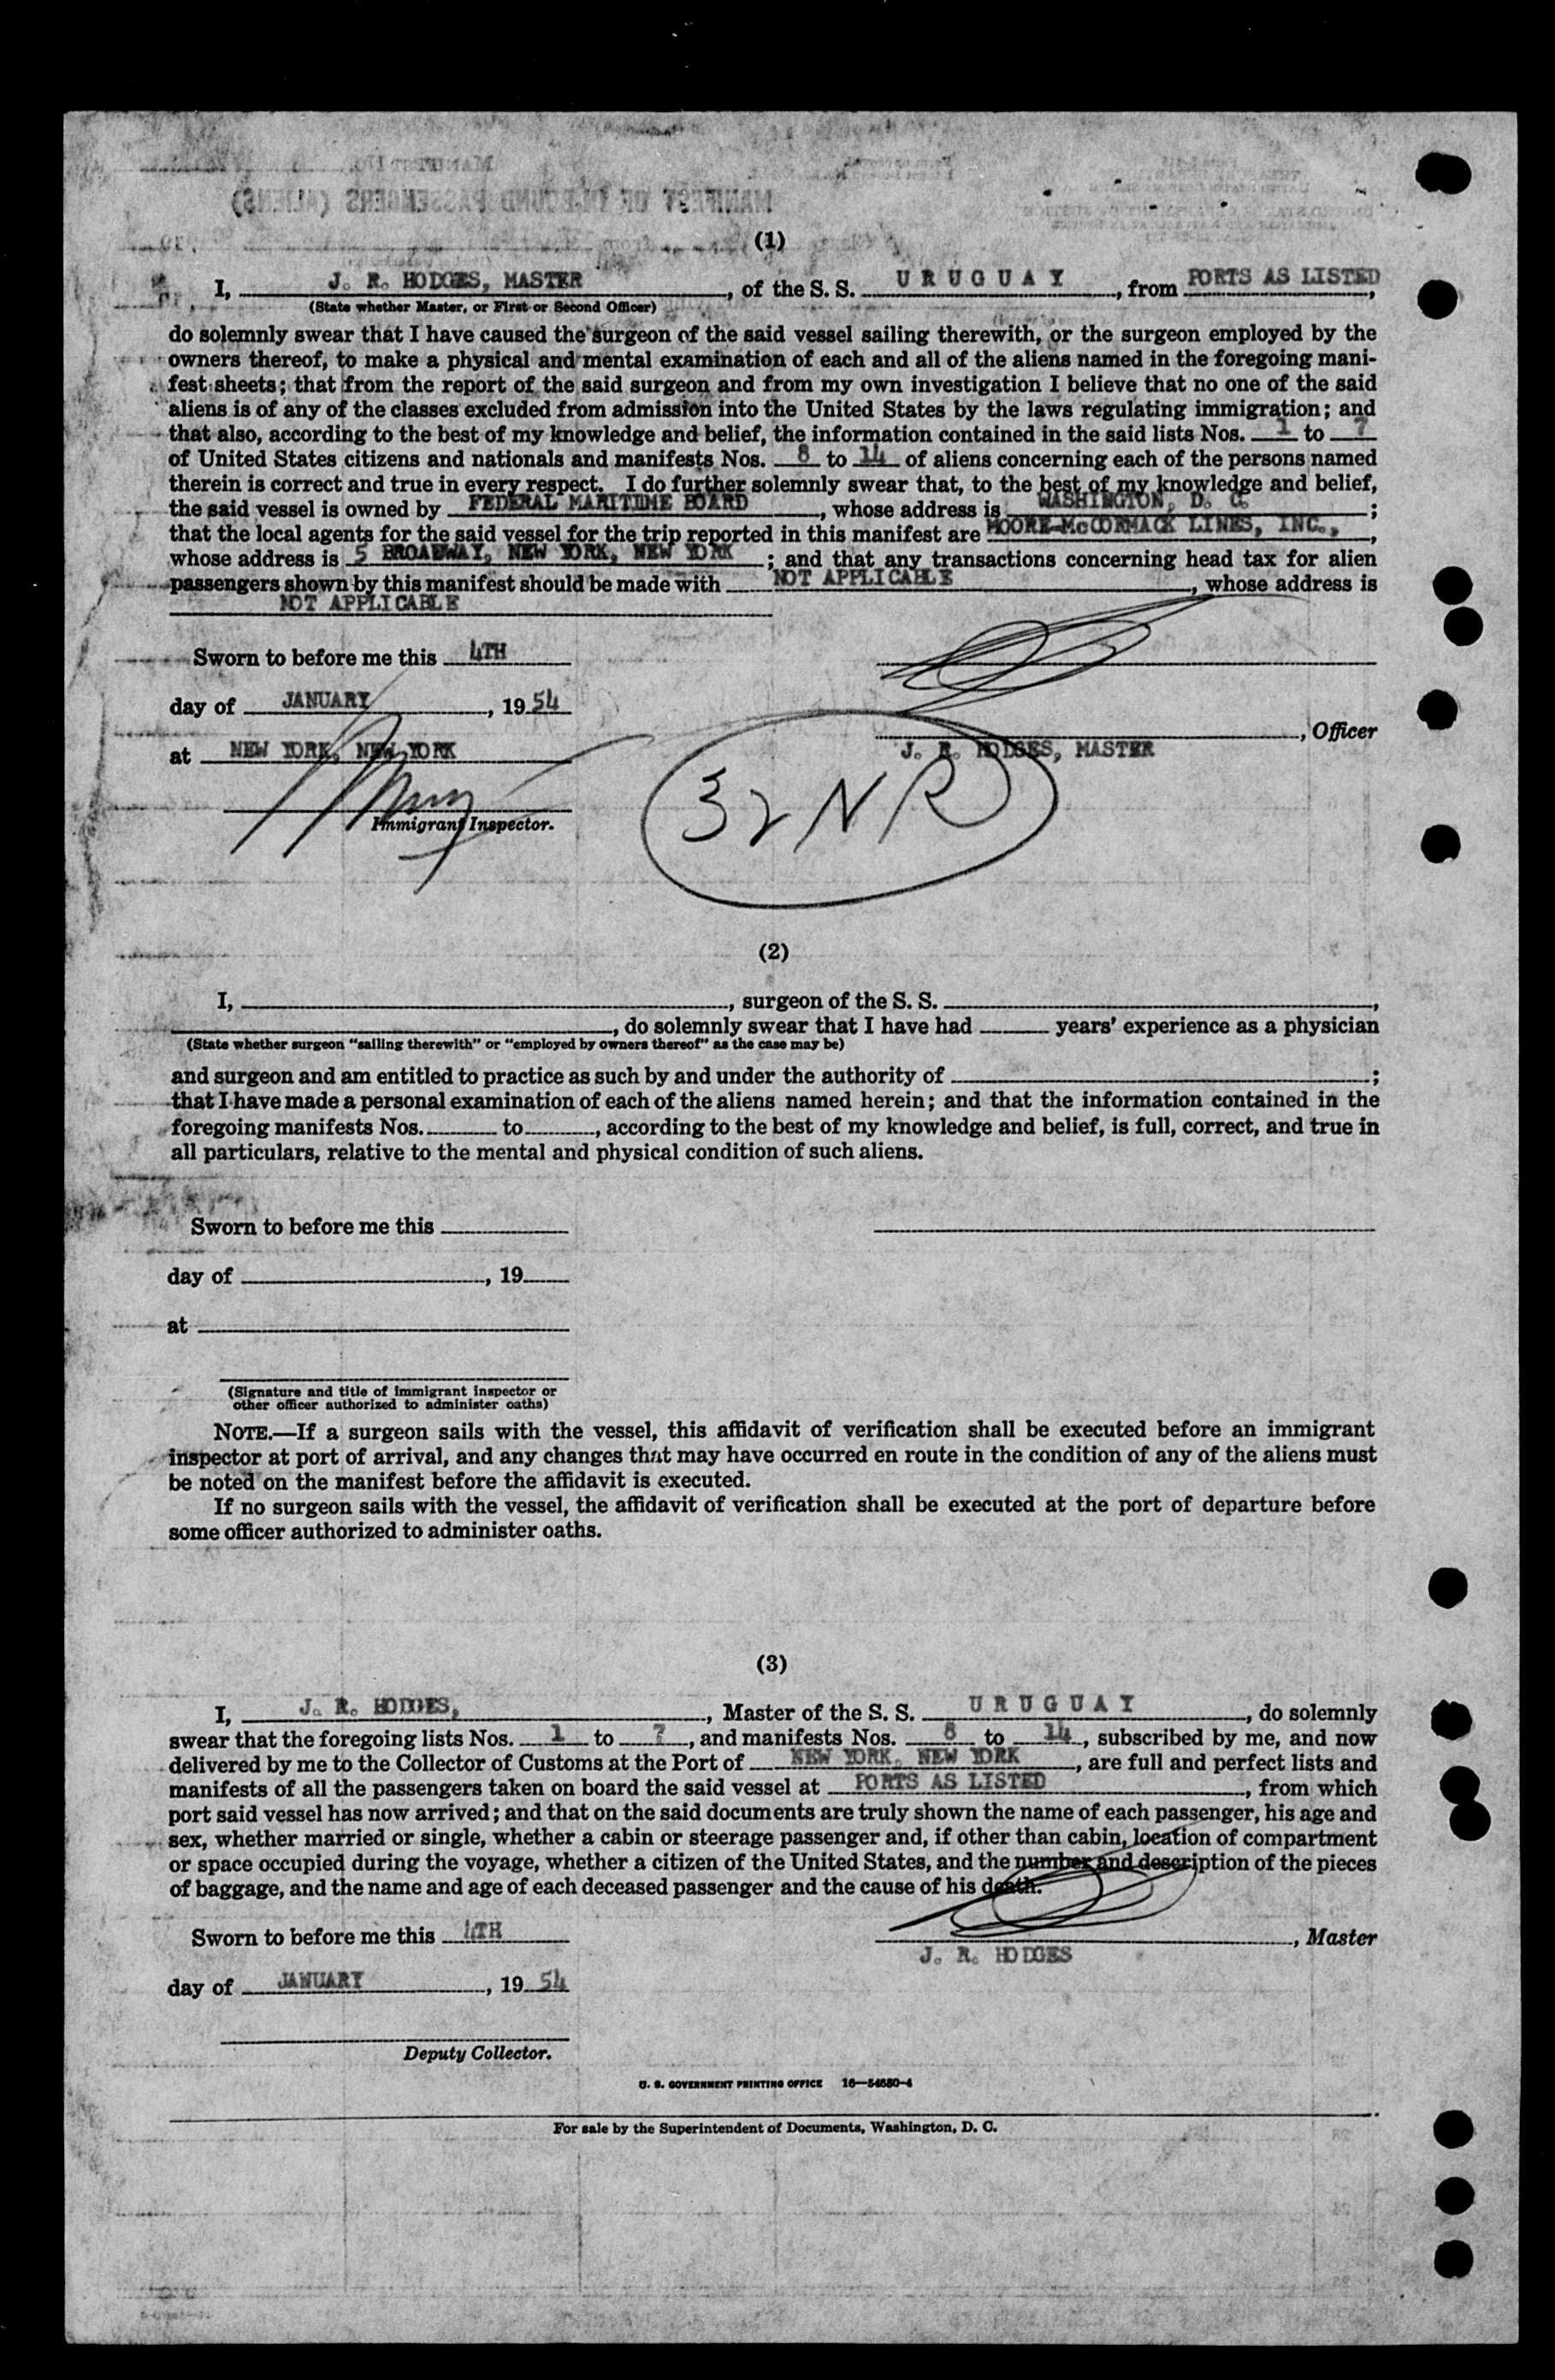 (1)
I, J. R. HODGES, MASTER, of the S. S. URUGUAY, from PORTS AS LISTED,
(State whether Master, or First or Second Officer)
do solemnly swear that I have caused the surgeon of the said vessel sailing therewith, or the surgeon employed by the
owners thereof, to make a physical and mental examination of each and all of the aliens named in the foregoing mani-
fest sheets; that from the report of the said surgeon and from my own investigation I believe that no one of the said
aliens is of any of the classes excluded from admission into the United States by the laws regulating immigration; and
that also, according to the best of my knowledge and belief, the information contained in the said lists Nos. 1 to 7
of United States citizens and nationals and manifests Nos. 8 to 14 of aliens concerning each of the persons named
therein is correct and true in every respect. I do further solemnly swear that, to the best of my knowledge and belief,
the said vessel is owned by FEDERAL MARITIME BOARD, whose address is WASHINGTON, D. C. ;
that the local agents for the said vessel for the trip reported in this manifest are MOORE-McCORMACK LINES, INC.,,
whose address is 5 BROADWAY, NEW YORK, NEW YORK; and that any transactions concerning head tax for alien
passengers shown by this manifest should be made with NOT APPLICABLE, whose address is
NOT APPLICABLE
Sworn to before me this 4TH
day of JANUARY, 1954
, Officer
at NEW YORK, NEW YORK
J. R. HODGES, MASTER
32 NR
Immigrant Inspector.
(2)
I, , surgeon of the S. S. ,
, do solemnly swear that I have had years' experience as a physician
(State whether surgeon "sailing therewith" or "employed by owners thereof" as the case may be)
and surgeon and am entitled to practice as such by and under the authority of ;
that I have made a personal examination of each of the aliens named herein; and that the information contained in the
foregoing manifests Nos. to , according to the best of my knowledge and belief, is full, correct, and true in
all particulars, relative to the mental and physical condition of such aliens.
Sworn to before me this
day of , 19
at
(Signature and title of immigrant inspector or
other officer authorized to administer oaths)
NOTE.—If a surgeon sails with the vessel, this affidavit of verification shall be executed before an immigrant
inspector at port of arrival, and any changes that may have occurred en route in the condition of any of the aliens must
be noted on the manifest before the affidavit is executed.
If no surgeon sails with the vessel, the affidavit of verification shall be executed at the port of departure before
some officer authorized to administer oaths.
(3)
I, J. R. HODGES, , Master of the S. S. URUGUAY, do solemnly
swear that the foregoing lists Nos. 1 to 7, and manifests Nos. 8 to 14, subscribed by me, and now
delivered by me to the Collector of Customs at the Port of NEW YORK, NEW YORK, are full and perfect lists and
manifests of all the passengers taken on board the said vessel at PORTS AS LISTED, from which
port said vessel has now arrived; and that on the said documents are truly shown the name of each passenger, his age and
sex, whether married or single, whether a cabin or steerage passenger and, if other than cabin, location of compartment
or space occupied during the voyage, whether a citizen of the United States, and the number and description of the pieces
of baggage, and the name and age of each deceased passenger and the cause of his death.
Sworn to before me this 4TH
, Master
J. R. HODGES
day of JANUARY, 1954
Deputy Collector.
U. S. GOVERNMENT PRINTING OFFICE 16—54680-4
For sale by the Superintendent of Documents, Washington, D. C.